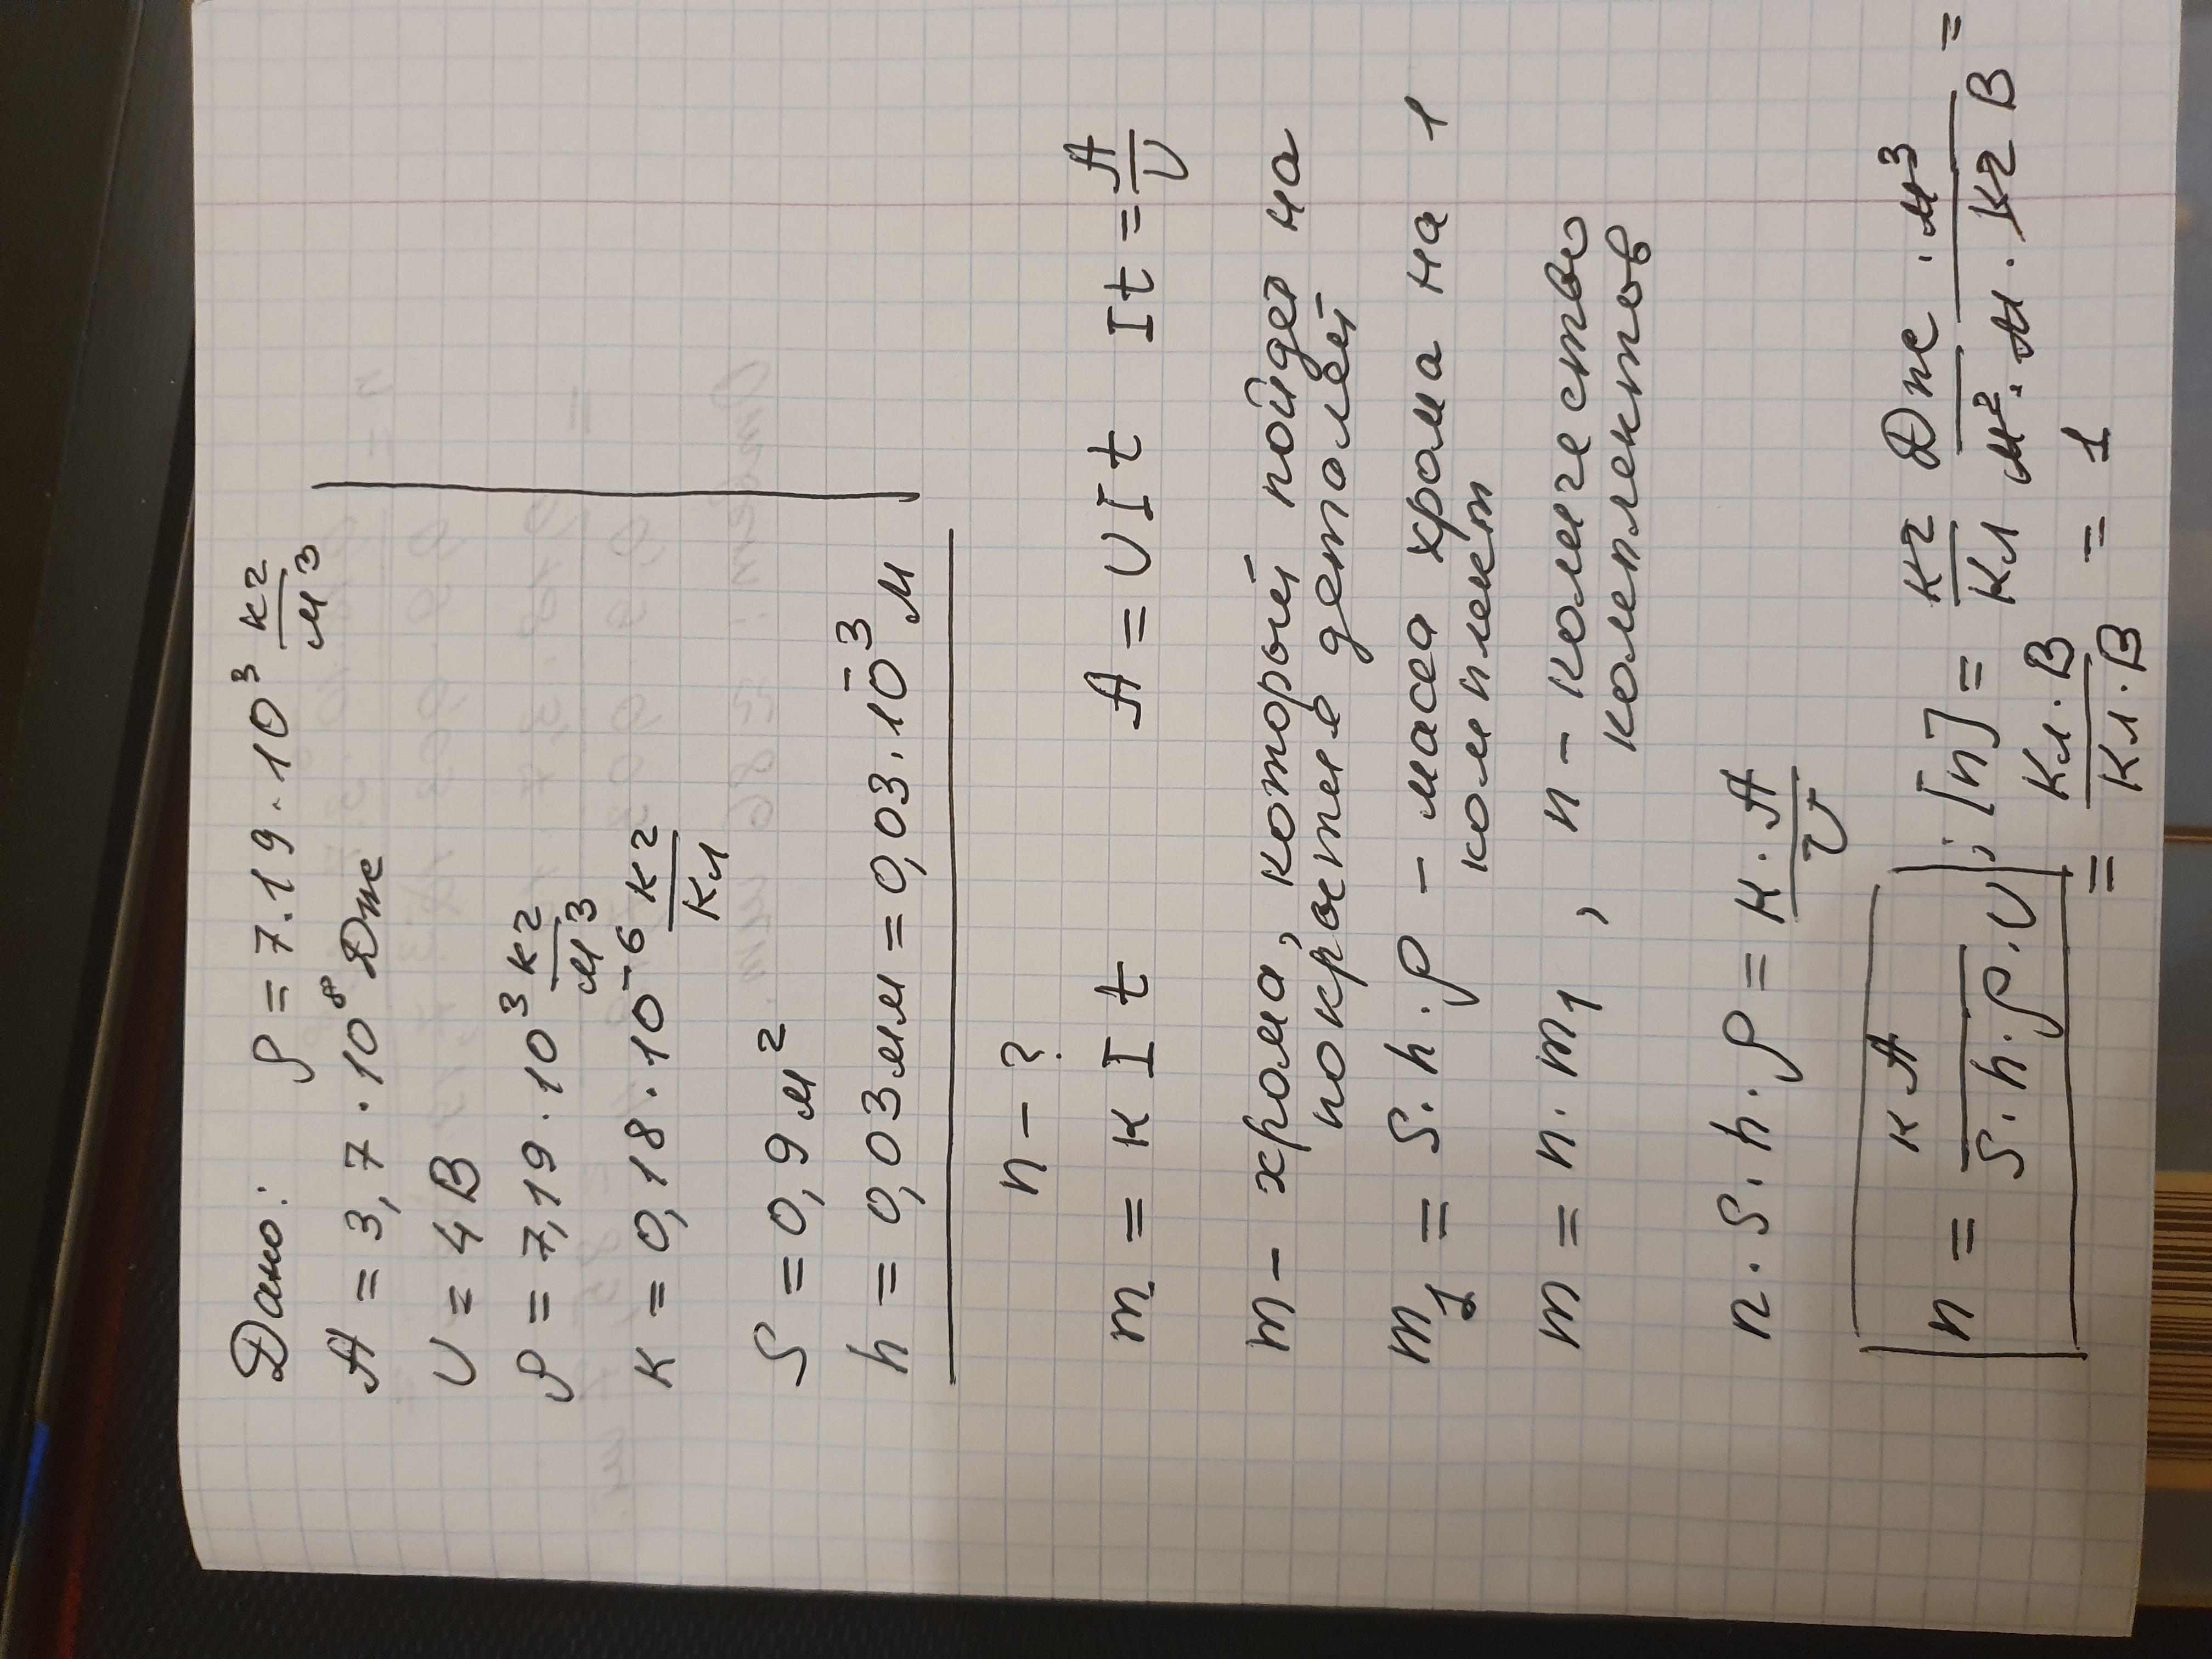 Дано: ρ = 7.19 · 10³ кг/м³
A = 3,7 · 10⁸ Дж
U = 4 В
ρ = 7,19 · 10³ кг/м³
к = 0,18 · 10⁻⁶ кг/Кл
S = 0,9 м²
h = 0,03 мм = 0,03 · 10⁻³ м
n - ?
m = к I t A = U I t It = A/U
m - хрома, который пойдет на
покрытие деталей
m₁ = S · h · ρ - масса хрома на 1
комплект
m = n · m₁ , n - количество
комплектов
n · S · h · ρ = к · A/U
n = к A/S · h · ρ · U ; [n] = кг/Кл Дж · м³/м² · м · кг В =
= Кл · В/Кл · В = 1